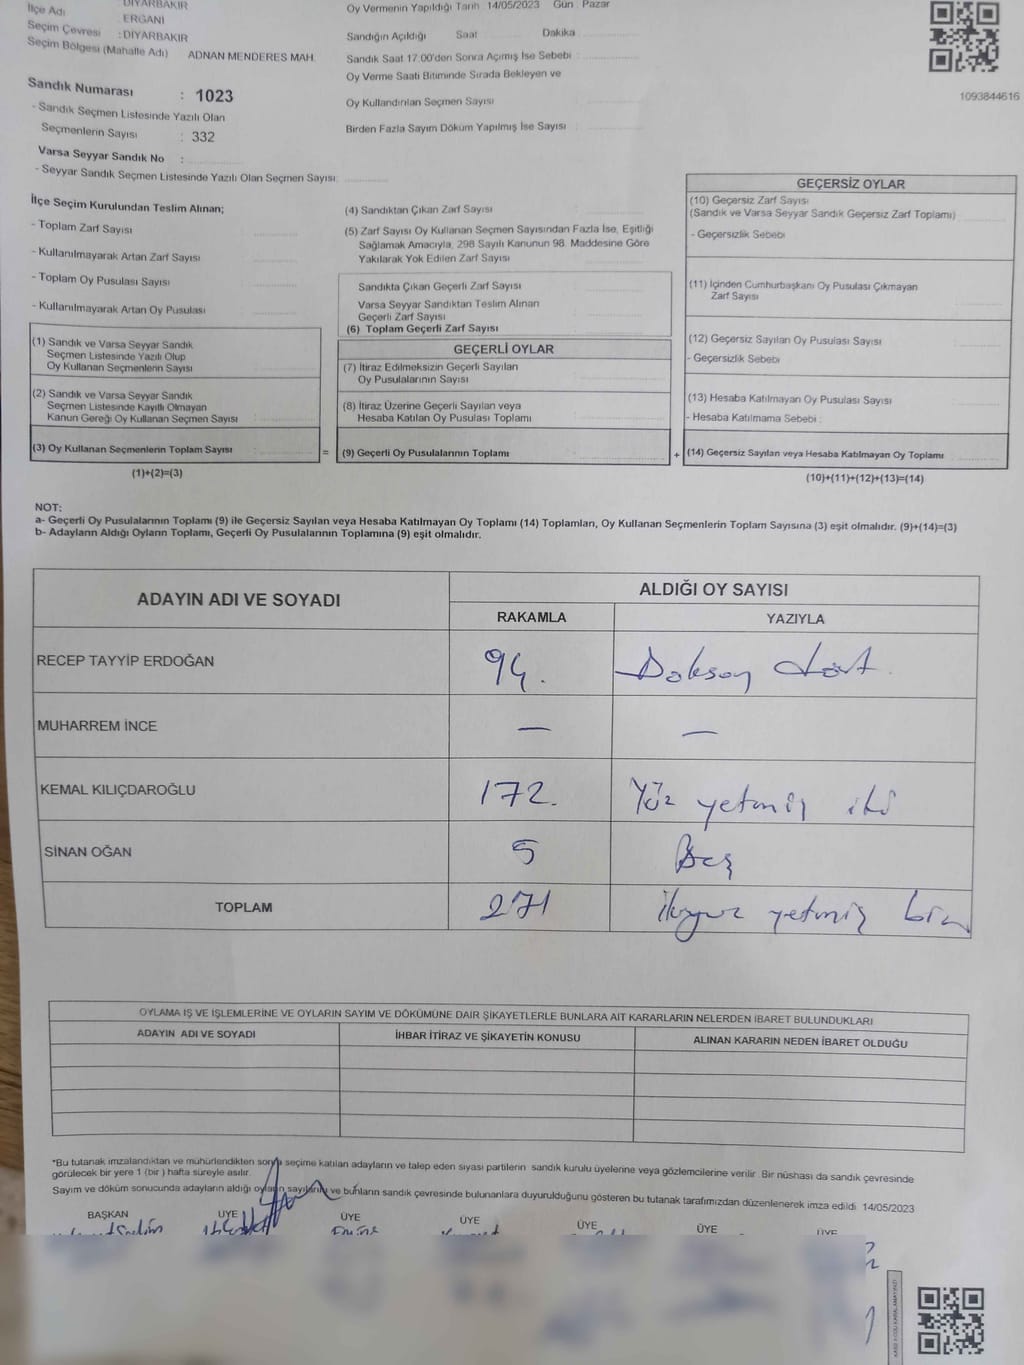 İlçe Adı : DİYARBAKIR
: ERGANİ
Seçim Çevresi : DİYARBAKIR
Seçim Bölgesi (Mahalle Adı) ADNAN MENDERES MAH.
Sandık Numarası : 1023
- Sandık Seçmen Listesinde Yazılı Olan
Seçmenlerin Sayısı : 332
Varsa Seyyar Sandık No :
- Seyyar Sandık Seçmen Listesinde Yazılı Olan Seçmen Sayısı:
Oy Vermenin Yapıldığı Tarih 14/05/2023 Gün Pazar
Sandığın Açıldığı Saat Dakika
Sandık Saat 17.00'den Sonra Açımış İse Sebebi :
Oy Verme Saati Bitiminde Sırada Bekleyen ve
Oy Kullandırılan Seçmen Sayısı
Birden Fazla Sayım Döküm Yapılmış İse Sayısı
1093844616
İlçe Seçim Kurulundan Teslim Alınan;
- Toplam Zarf Sayısı
- Kullanılmayarak Artan Zarf Sayısı
- Toplam Oy Pusulası Sayısı
- Kullanılmayarak Artan Oy Pusulası
(1) Sandık ve Varsa Seyyar Sandık
Seçmen Listesinde Yazılı Olup
Oy Kullanan Seçmenlerin Sayısı
(2) Sandık ve Varsa Seyyar Sandık
Seçmen Listesinde Kayıtlı Olmayan
Kanun Gereği Oy Kullanan Seçmen Sayısı
(3) Oy Kullanan Seçmenlerin Toplam Sayısı
(1)+(2)=(3)
(4) Sandıktan Çıkan Zarf Sayısı
(5) Zarf Sayısı Oy Kullanan Seçmen Sayısından Fazla İse, Eşitliği
Sağlamak Amacıyla, 298 Sayılı Kanunun 98. Maddesine Göre
Yakılarak Yok Edilen Zarf Sayısı
Sandıkta Çıkan Geçerli Zarf Sayısı
Varsa Seyyar Sandıktan Teslim Alınan
Geçerli Zarf Sayısı
(6) Toplam Geçerli Zarf Sayısı
GEÇERLİ OYLAR
(7) İtiraz Edilmeksizin Geçerli Sayılan
Oy Pusulalarının Sayısı
(8) İtiraz Üzerine Geçerli Sayılan veya
Hesaba Katılan Oy Pusulası Toplamı
= (9) Geçerli Oy Pusulalarının Toplamı
GEÇERSİZ OYLAR
(10) Geçersiz Zarf Sayısı
(Sandık ve Varsa Seyyar Sandık Geçersiz Zarf Toplamı)
- Geçersizlik Sebebi
(11) İçinden Cumhurbaşkanı Oy Pusulası Çıkmayan
Zarf Sayısı
(12) Geçersiz Sayılan Oy Pusulası Sayısı
- Geçersizlik Sebebi
(13) Hesaba Katılmayan Oy Pusulası Sayısı
- Hesaba Katılmama Sebebi :
+ (14) Geçersiz Sayılan veya Hesaba Katılmayan Oy Toplamı
(10)+(11)+(12)+(13)=(14)
NOT:
a- Geçerli Oy Pusulalarının Toplamı (9) ile Geçersiz Sayılan veya Hesaba Katılmayan Oy Toplamı (14) Toplamları, Oy Kullanan Seçmenlerin Toplam Sayısına (3) eşit olmalıdır. (9)+(14)=(3)
b- Adayların Aldığı Oyların Toplamı, Geçerli Oy Pusulalarının Toplamına (9) eşit olmalıdır.
ADAYIN ADI VE SOYADI ALDIĞI OY SAYISI
RAKAMLA YAZIYLA
RECEP TAYYİP ERDOĞAN 94. Doksan dört.
MUHARREM İNCE — —
KEMAL KILIÇDAROĞLU 172. Yüz yetmiş iki
SİNAN OĞAN 5 Beş
TOPLAM 271 ikiyüz yetmiş bir
OYLAMA İŞ VE İŞLEMLERİNE VE OYLARIN SAYIM VE DÖKÜMÜNE DAİR ŞİKAYETLERLE BUNLARA AİT KARARLARIN NELERDEN İBARET BULUNDUKLARI
ADAYIN ADI VE SOYADI İHBAR İTİRAZ VE ŞİKAYETİN KONUSU ALINAN KARARIN NEDEN İBARET OLDUĞU
*Bu tutanak imzalandıktan ve mühürlendikten sonra seçime katılan adayların ve talep eden siyasi partilerin sandık kurulu üyelerine veya gözlemcilerine verilir. Bir nüshası da sandık çevresinde
görülecek bir yere 1 (bir) hafta süreyle asılır.
Sayım ve döküm sonucunda adayların aldığı oyların sayılarını ve bunların sandık çevresinde bulunanlara duyurulduğunu gösteren bu tutanak tarafımızdan düzenlenerek imza edildi 14/05/2023
BAŞKAN ÜYE ÜYE ÜYE ÜYE ÜYE ÜYE
Emine